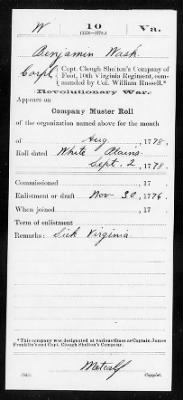 W 10 Va.
Benjamin Wash
Corpl, Capt. Clough Shelton's Company of
Foot, 10th Virginia Regiment, com-
manded by Col. William Russell.*
Revolutionary War.
Appears on
Company Muster Roll
of the organization named above for the month
of Aug, 1778.
Roll dated White Plains
Sept. 2, 1778.
Commissioned , 17 .
Enlistment or draft Nov. 30, 1776.
When joined , 17 .
Term of enlistment
Remarks: Sick Virginia
*This company was designated at various times as Captain James
Franklin's and Capt. Clough Shelton's Company.
Metcalf
Copyist.